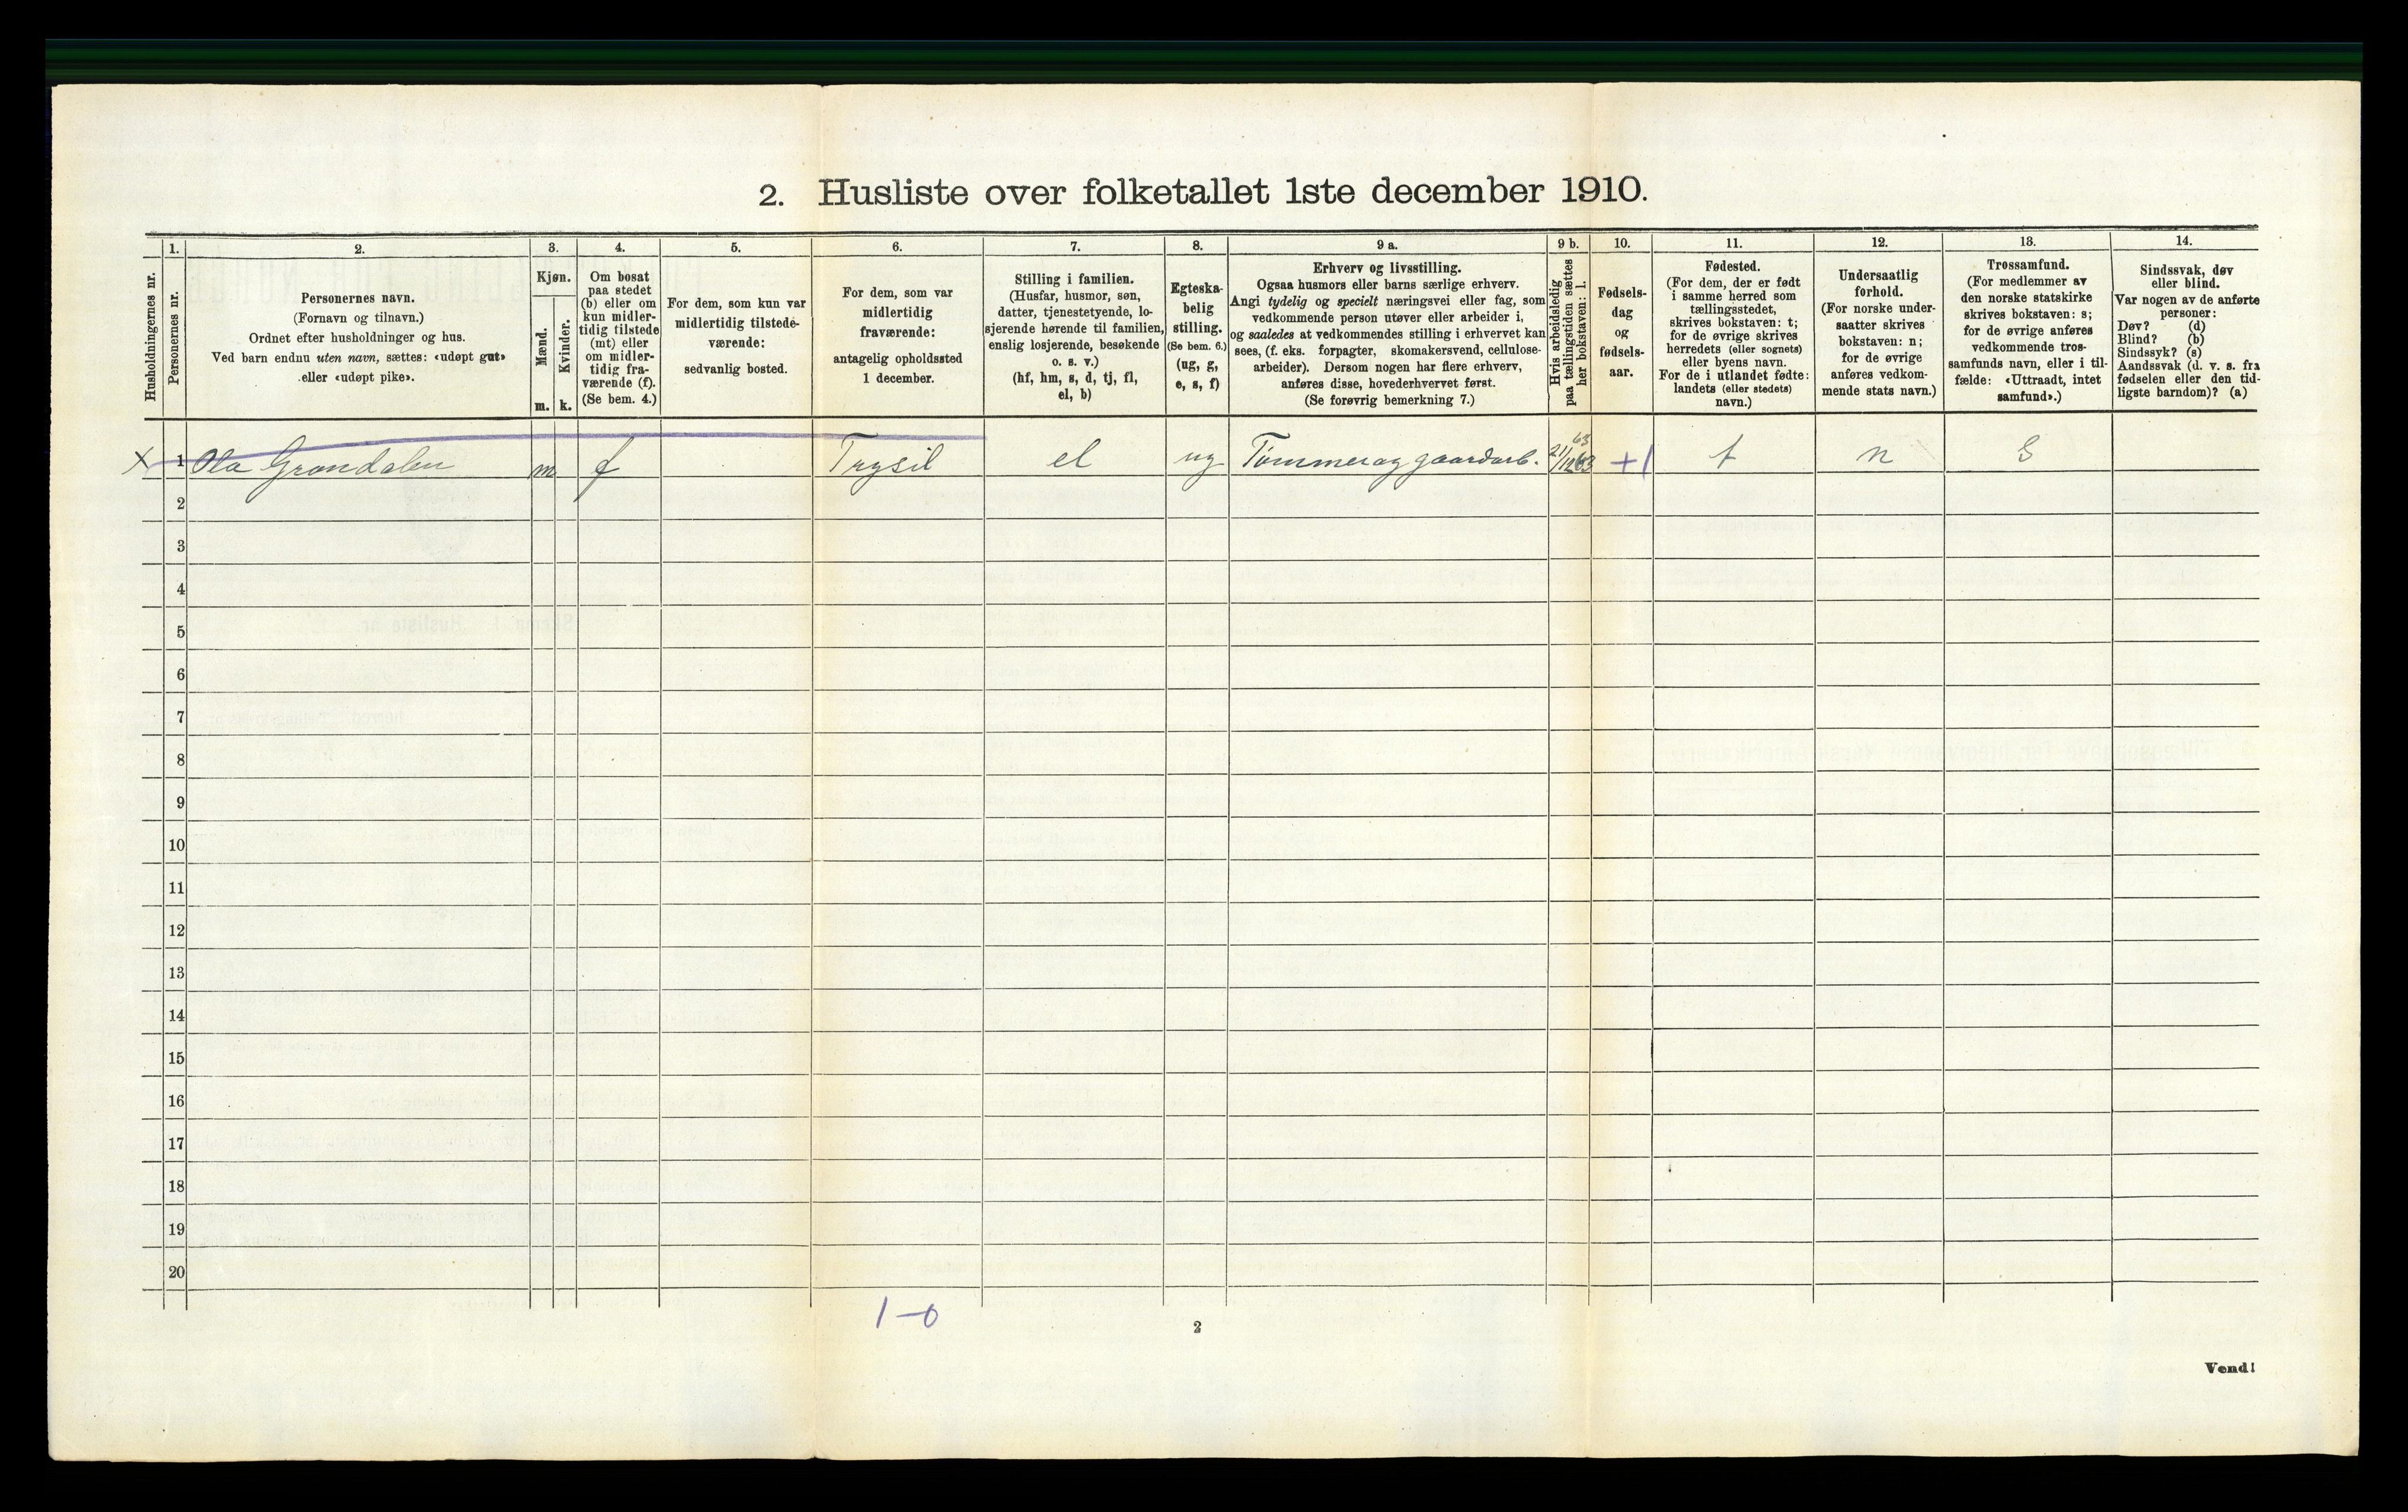 2. Husliste over folketallet 1ste december 1910.
Husholdningernes nr.
1.
Personernes nr.
2.
Personernes navn.
(Fornavn og tilnavn.)
Ordnet efter husholdninger og hus.
Ved barn endnu uten navn, sættes: «udøpt gut»
eller «udøpt pike».
3.
Kjøn.
Mænd.
m.
Kvinder.
k.
4.
Om bosat
paa stedet
(b) eller om
kun midler-
tidig tilstede
(mt) eller
om midler-
tidig fra-
værende (f).
(Se bem. 4.)
5.
For dem, som kun var
midlertidig tilstede-
værende:
sedvanlig bosted.
6.
For dem, som var
midlertidig
fraværende:
antagelig opholdssted
1 december.
7.
Stilling i familien.
(Husfar, husmor, søn,
datter, tjenestetyende, lo-
sjerende hørende til familien,
enslig losjerende, besøkende
o. s. v.)
(hf, hm, s, d, tj, fl,
el, b)
8.
Egteska-
belig
stilling.
(Se bem. 6.)
(ug, g,
e, s, f)
9 a.
Erhverv og livsstilling.
Ogsaa husmors eller barns særlige erhverv.
Angi tydelig og specielt næringsvei eller fag, som
vedkommende person utøver eller arbeider i,
og saaledes at vedkommendes stilling i erhvervet kan
sees, (f. eks. forpagter, skomakersvend, cellulose-
arbeider). Dersom nogen har flere erhverv,
anføres disse, hovederhvervet først.
(Se forøvrig bemerkning 7.)
9 b.
Hvis arbeidsledig
paa tællingstiden sættes
her bokstaven: l.
10.
Fødsels-
dag
og
fødsels-
aar.
11.
Fødested.
(For dem, der er født
i samme herred som
tællingsstedet,
skrives bokstaven: t;
for de øvrige skrives
herredets (eller sognets)
eller byens navn.
For de i utlandet fødte:
landets (eller stedets)
navn.)
12.
Undersaatlig
forhold.
(For norske under-
saatter skrives
bokstaven: n;
for de øvrige
anføres vedkom-
mende stats navn.)
13.
Trossamfund.
(For medlemmer av
den norske statskirke
skrives bokstaven: s;
for de øvrige anføres
vedkommende tros-
samfunds navn, eller i til-
fælde: «Uttraadt, intet
samfund».)
14.
Sindssvak, døv
eller blind.
Var nogen av de anførte
personer:
Døv? (d)
Blind? (b)
Sindssyk? (s)
Aandssvak (d. v. s. fra
fødselen eller den tid-
ligste barndom)? (a)
X 1 Ola Grøndalen m f Trysil el ug Tømmer og gaardarb. 21/12 63 +1 t n S
63
2
3
4
5
6
7
8
9
10
11
12
13
14
15
16
17
18
19
20
1-0
2
Vend!